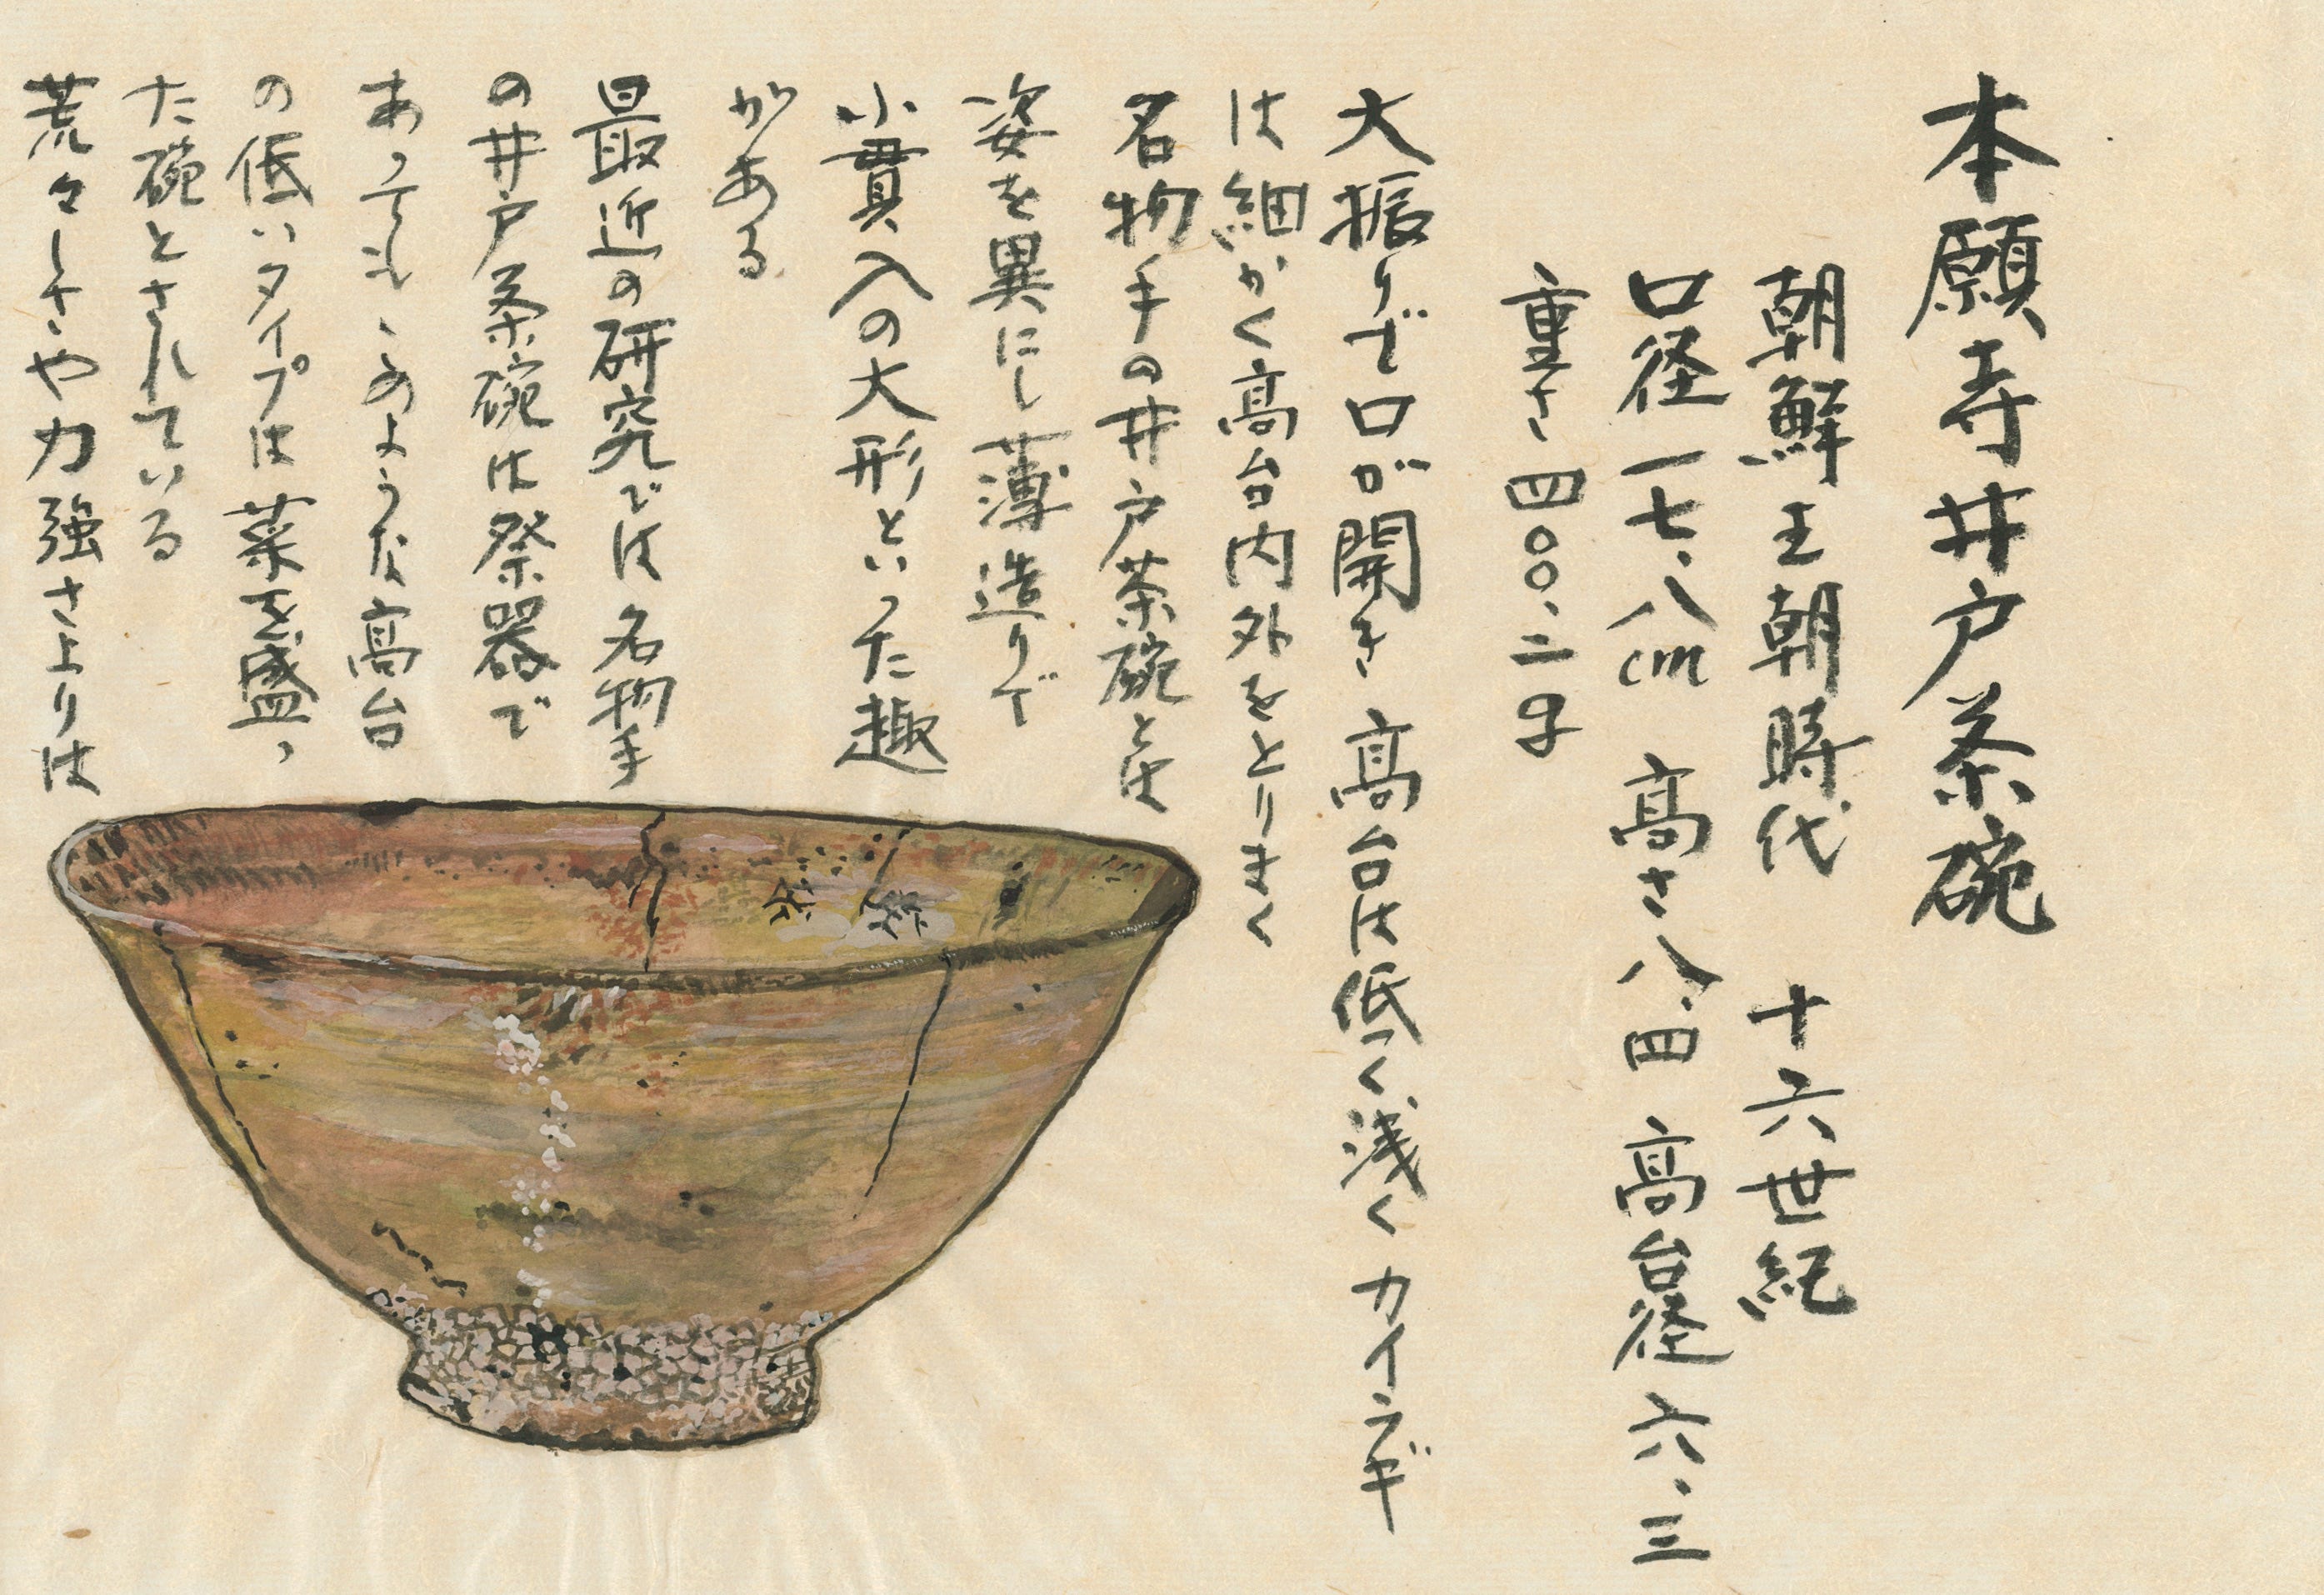 本願寺井戸茶碗
朝鮮王朝時代 十六世紀
口径一七.八cm 高さ八.四 高台径六.三
重さ四〇〇.二g
大振りで口が開き 高台は低く浅くカイラギ
は細かく高台内外をとりまく
名物手の井戸茶碗とは
姿を異にし薄造りで
小貫入の大形といった趣
がある
最近の研究では名物手
の井戸茶碗は祭器で
あっても、このような高台
の低いタイプは菜を盛っ
た碗とされている
荒々しさや力強さよりは